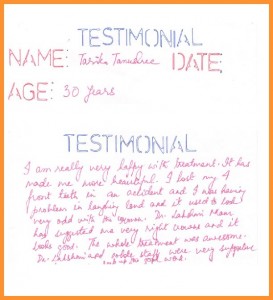 TESTIMONIAL
NAME: Tarika DATE:
AGE: 30 years
TESTIMONIAL
I am really very happy with treatment. It has
made me more beautiful. I lost my 4
front teeth in an accident and I was having
problem in laughing loud and it used to look
very odd with this. Dr. Lakshmi Mam
had suggested me very right crowns and it
looks good. The whole treatment was awesome.
Dr. Lakshmi and whole staff were very supportive
good work.